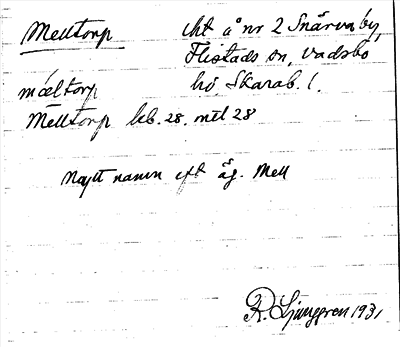 Melltorp lht å nr 2 Snärva by,
Flistads sn, Vadsbo
hd, Skarab. l.
mæltorp
Melltorp lxb. 28. mtl 28
Nytt namn eft äg. Mell
R. Ljunggren 1931